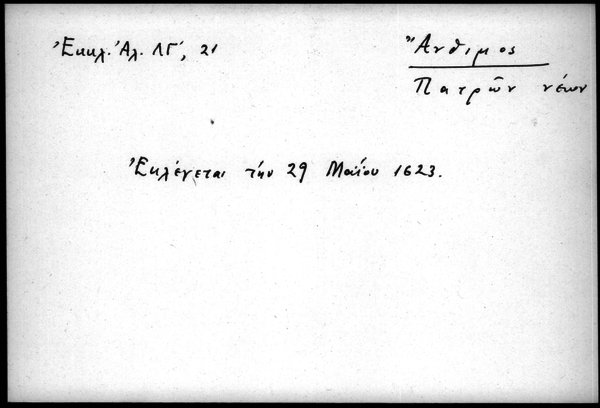 Ἐκκλ. Ἀλ. ΛΓ΄, 21
Ἄνθιμος
Πατρῶν νέων
Ἐκλέγεται τήν 29 Μαΐου 1623.